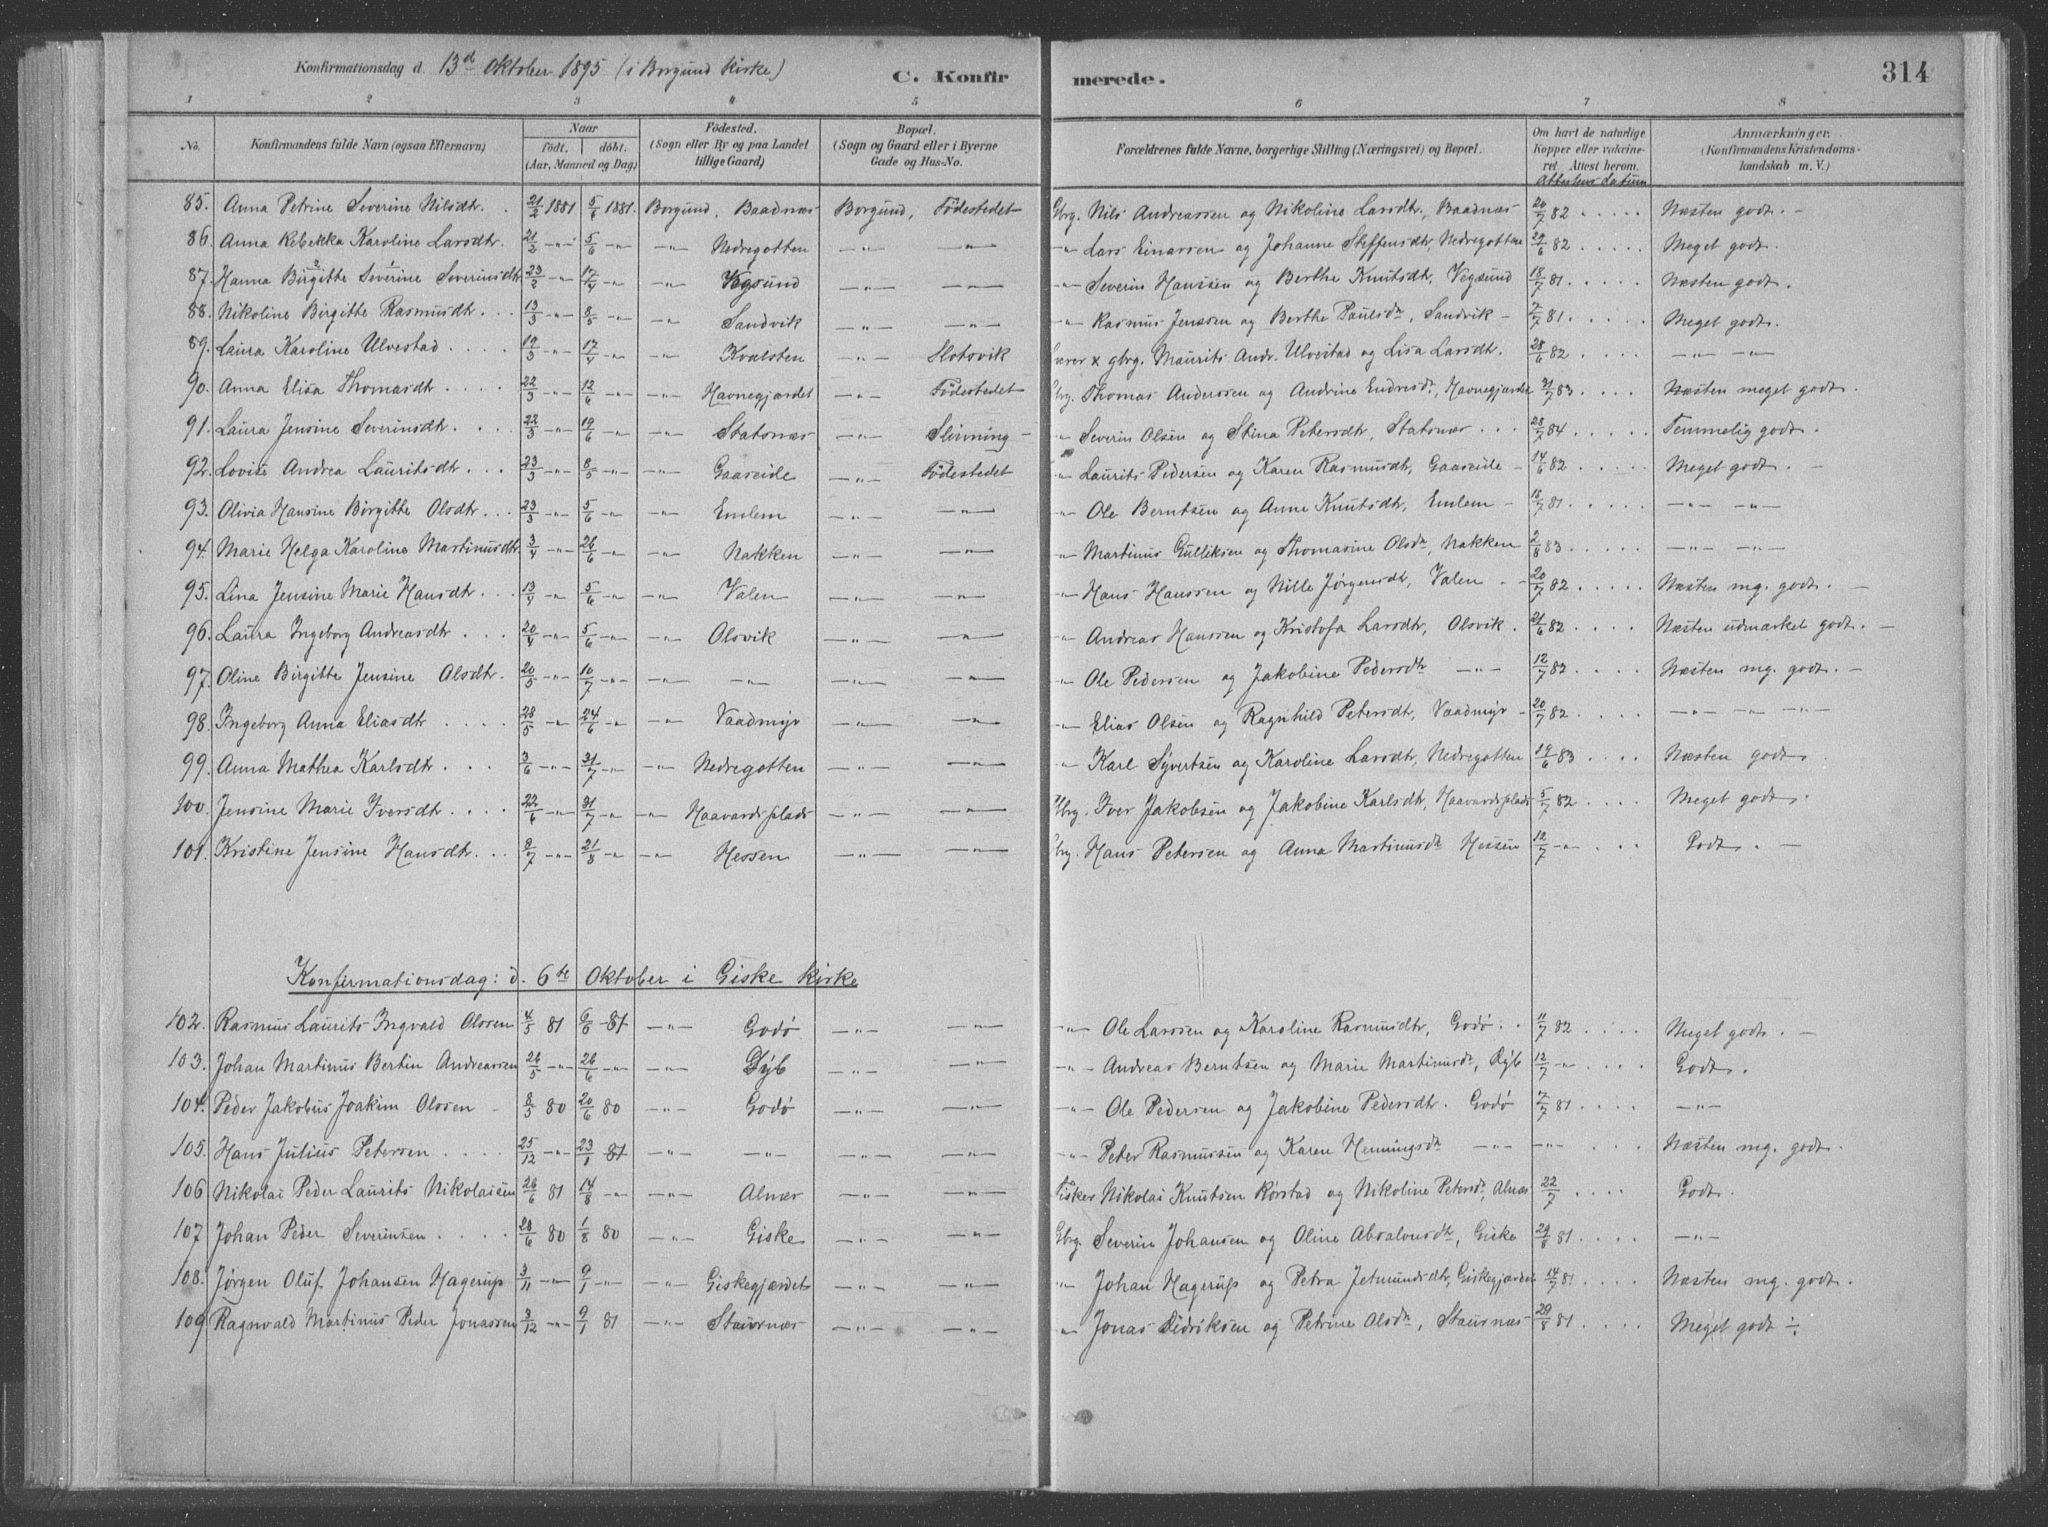 Konfirmationsdag d. 13d Oktober 1895 (i Borgund Kirke) C. Konfirmerede. 314
1 2 3 4 5 6 7 8
No. Konfirmandens fulde Navn (ogsaa Efternavn) Naar födt. döbt. (Aar, Maaned og Dag) Födested. (Sogn eller By og paa Landet tillige Gaard) Bopæl. (Sogn og Gaard eller i Byerne Gade og Hus-No. Forældrenes fulde Navne, borgerlige Stilling (Næringsvei) og Bopæl. Om havt de naturlige Kopper eller vakcineret. Attest herom. Attestens datum Anmærkninger. (Konfirmandens Kristendomskundskab m. V.)
85. Anna Petrine Severine Nilsdtr. 21/2 1881 5/6 1881. Borgund, Baadnæs Borgund, Födestedet Gbrg. Nils Andreassen og Nikoline Larsdtr, Baadnæs 20/7 82 Næsten godt.
86. Anna Rebekka Karoline Larsdtr. 21/2 -"- 5/6 -"- -"- Nedregotten -"- -"- -"- Lars Einarsen og Johanne Steffensdtr, Nedregotten 29/6 82 Meget godt.
87. Hanna Birgitte Severine Severinsdtr 23/2 -"- 17/4 -"- -"- Vegsund -"- -"- -"- Severin Hanssen og Berthe Knutsdtr, Vegsund 18/7 81 Næsten godt.
88. Nikoline Birgitte Rasmusdtr. 13/3 -"- 8/5 -"- -"- Sandvik -"- -"- -"- Rasmus Jenssen og Berthe Paulsdtr, Sandvik 7/7 81 Meget godt.
89. Laura Karoline Ulvestad 19/3 -"- 17/4 -"- -"- Kvalsten -"- Slotsvik Lærer x gbrg. Maurits Andr. Ulvestad og Lisa Larsdtr. 28/6 82 -"- -"-
90. Anna Elisa Thomasdtr 22/3 -"- 12/6 -"- -"- Havnegjærdet -"- Födestedet Gbrg. Thomas Anderssen og Andrine Endresdtr, Havnegjærdet 31/7 83 Næsten meget godt.
91. Laura Jensine Severinsdtr. 22/3 -"- 19/6 -"- -"- Statsnæs -"- Slinning -"- Severin Olsen og Stina Petersdtr, Statsnæs 28/7 84 Temmelig godt.
92. Lovise Andrea Lauritsdtr 23/3 -"- 8/5 -"- -"- Gaaseide -"- Födestedet -"- Laurits Pedersen og Karen Rasmusdtr, Gaaseide 14/6 82 Meget godt.
93. Olivia Hansine Birgitte Olsdtr 23/3 -"- 5/6 -"- -"- Emlem -"- -"- -"- Ole Berntsen og Anne Knutsdtr, Emlem 18/7 81 -"- -"-
94. Marie Helga Karoline Martinusdtr 3/4 -"- 26/6 -"- -"- Nakken -"- -"- -"- Martinus Gulliksen og Thomasine Olsdtr, Nakken 2/8 83 -"- -"-
95. Lina Jensine Marie Hansdtr 13/4 -"- 5/6 -"- -"- Valen -"- -"- -"- Hans Hanssen og Nille Jørgensdtr, Valen 20/7 82 Næsten mg. godt.
96. Laura Ingeborg Andreasdtr 20/4 -"- 5/6 -"- -"- Olsvik -"- -"- -"- Andreas Hanssen og Kristofa Larsdtr, Olsvik. 21/6 82 Næsten udmærket godt.
97. Oline Birgitte Jensine Olsdtr. 20/5 -"- 10/7 -"- -"- -"- -"- -"- -"- Ole Pedersen og Jakobine Pedersdtr -"- 12/7 82 Næsten mg. godt.
98. Ingeborg Anna Eliasdtr 28/5 -"- 24/6 -"- -"- Vaadmyr -"- -"- -"- Elias Olsen og Ragnhild Petersdtr, Vaadmyr 20/7 82 -"- -"- -"-
99. Anna Mathea Karlsdtr 3/6 -"- 31/7 -"- -"- Nedregotten -"- -"- -"- Karl Syvertsen og Karoline Larsdtr, Nedregotten 19/6 83 Næsten godt.
100. Jensine Marie Iversdtr. 22/6 -"- 31/7 -"- -"- Haavardsplads -"- -"- Gbrg. Iver Jakobsen og Jakobine Karlsdtr, Haavardsplads 5/7 82 Meget godt.
101. Kristine Jensine Hansdtr. 8/7 -"- 21/8 -"- -"- Hessen -"- -"- Gbrg. Hans Petersen og Anna Martinusdtr Hessen 12/7 -"- Godt.
Konfirmationsdag: d. 6te Oktober i Giske Kirke
102. Rasmus Laurits Ingvald Olssen 4/5 81 6/6 81 -"- Godø -"- -"- -"- Ole Larssen og Karoline Rasmusdtr, Godø 11/7 82 Meget godt.
103. Johan Martinus Bertin Andreassen 26/5 -"- 26/6 -"- -"- Dyb -"- -"- -"- Andreas Berntsen og Marie Martinusdtr, Dyb 12/7 -"- Godt.
104. Peder Jakobus Joakim Olssen 8/5 80 20/6 80 -"- Godø -"- -"- -"- Ole Pedersen og Jakobine Pedersdtr. Godø 7/7 81 -"-
105. Hans Julius Petersen 25/12 -"- 23/1 81 -"- -"- -"- -"- -"- Peder Rasmussen og Karen Henningsdtr -"- -"- Næsten mg. godt.
106 Nikolai Peder Laurits Nikolaisen 26/6 81 14/8 -"- -"- Alnæs -"- -"- Fisker Nikolai Knutsen Rørstad og Nikoline Petersdtr, Alnæs 22/7 Godt.
107. Johan Peder Severinsen 28/6 80 1/8 80 -"- Giske -"- -"- Gbrg. Severin Johansen og Oline Absalonsdtr, Giske 29/8 81 -"-
108. Jørgen Oluf Johansen Hagerup 3/11 -"- 9/1 -"- -"- Giskegjærdet -"- -"- -"- Johan Hagerup og Petra Jetmundsdtr, Giskegjærdet 14/7 81 Næsten mg. godt.
109 Ragnvald Martinus Peder Jonassen 3/12 -"- 9/1 81 -"- Staurnæs -"- -"- -"- Jonas Didriksen og Petrine Olsdtr, Staurnæs 29/8 81 Meget godt ÷